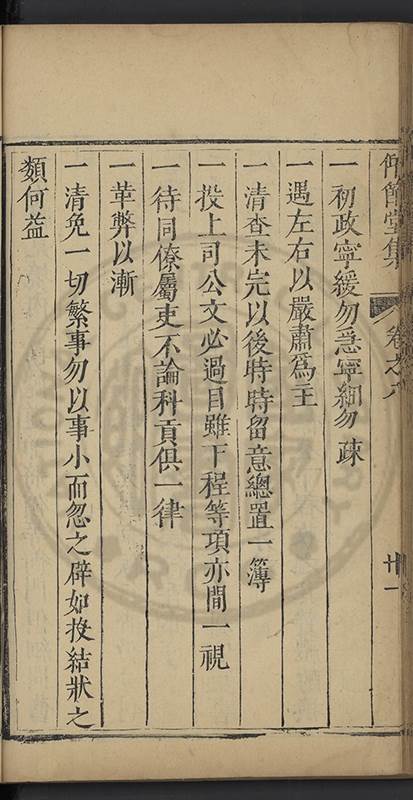 仰節堂集 卷之八 廿一
一初政寧緩勿急寧細勿疎
一遇左右以嚴肅爲主
一清查未完以後時時留意總置一簿
一投上司公文必過目雖下程等項亦間一視
一待同僚屬吏不論科貢俱一律
一革弊以漸
一清免一切繁事勿以事小而忽之辟如投結狀之
類何益